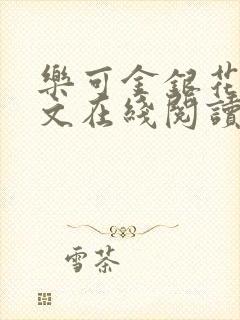 樂可金銀花
文在綫閱讀
雪茶